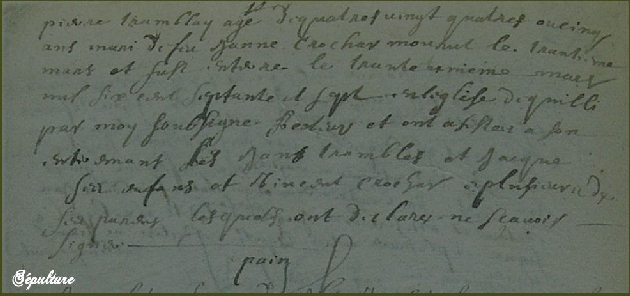 pierre tramblay agé de quatres vingt quatres ou cinq
ans mari de feu Janne Crochar mourut le trantieme
mars et fust interre le trante unieme mars
mil six cent septante et sept en leglise de quilli
par moy soubsigne et ont asistes a son
enterremant Jan trambles et Jacque
ses enfans et Vincent Crochar et plusieurs de
ses parens lesquels ont declares ne scavoir
signer
pain
Sépulture